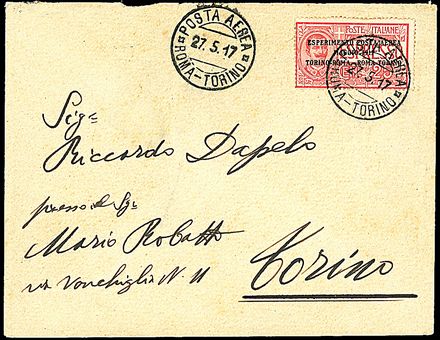 POSTA AEREA
27.5.17
ROMA-TORINO
POSTE ITALIANE
ESPERIMENTO POSTA AEREA
MAGGIO 1917
TORINO-ROMA · ROMA-TORINO
POSTA AEREA
27.5.17
ROMA-TORINO
Sig=
Riccardo Dapelo
presso il Sig=
Mario Robatto
via Vanchiglia N. 11
Torino